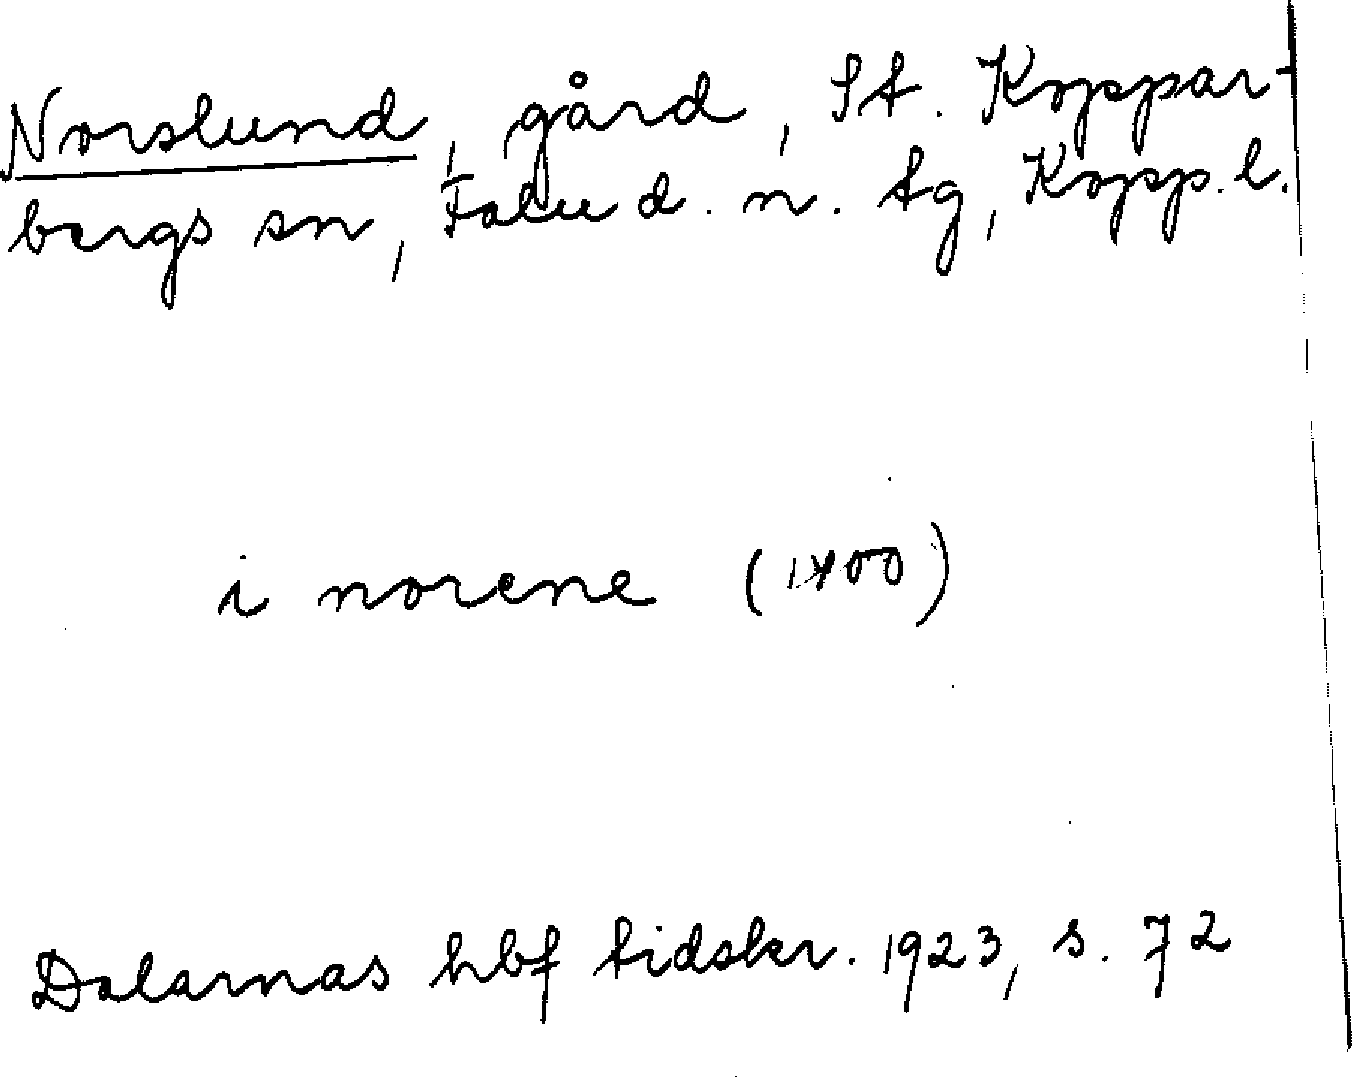 Norslund, gård, St. Koppar-
bergs sn, Falu d. n. tg, Kopp. l.
i norene (1400)
Dalarnas hbf tidskr. 1923, s. 72